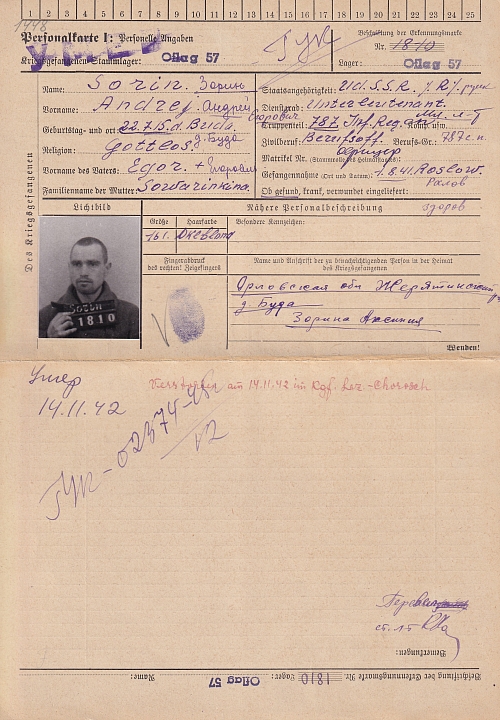 1 2 3 4 5 6 7 8 9 10 11 12 13 14 15 16 17 18 19 20 21 22 23 24 25
1448
Personalkarte I: Personelle Angaben
Beschriftung der Erkennungsmarke
Nr. 1810
Kriegsgefangenen-Stammlager: Oflag 57
Lager: Oflag 57
Des Kriegsgefangenen
Name: Sorin. Зорин
Staatsangehörigkeit: U.d.S.S.R.
Vorname: Andrej. Андрей Егорович
Dienstgrad: Unterleutenant. Мл. л-т
Geburtstag und -ort 22.7.15. d. Buda. д. Буда
Truppenteil: 787 Inf. Reg.
Religion: Gottlos.
Zivilberuf: Berufsoff. Berufs-Gr.: 787 с.п.
офицер
Vorname des Vaters: Egor. + Егорович
Matrikel Nr. (Stammrolle des Heimatstaates):
Gefangennahme (Ort und Datum): 7.8.41. Roslow.
Familienname der Mutter: Sowarinkina.
Ob gefund, krank, verwundet eingeliefert:
здоров
Lichtbild
Nähere Personalbeschreibung
Größe Haarkarbe Besondere Kennzeichen:
161. Dkeblond
Fingerabdruck
des rechten! Zeigefingers
Name und Anschrift der zu benachrichtigenden Person in der Heimat
des Kriegsgefangenen
Орловская обл
д. Буда
Зорина Аксиния
1810
Wenden!
Умер
14.11.42
Verstorben am 14.11.42 im Kgf. Laz. -Chorosch
ГУК-02374-45г
ст. л-т
Bemerkungen:
Beschriftung der Erkennungsmarke Nr. 1810 Lager: Oflag 57 Name: